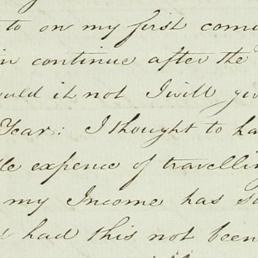 to on my first com
in continue after the
ould it not I will giv
Year: I thought to ha
le expence of travellin
my Income has s
had this not been